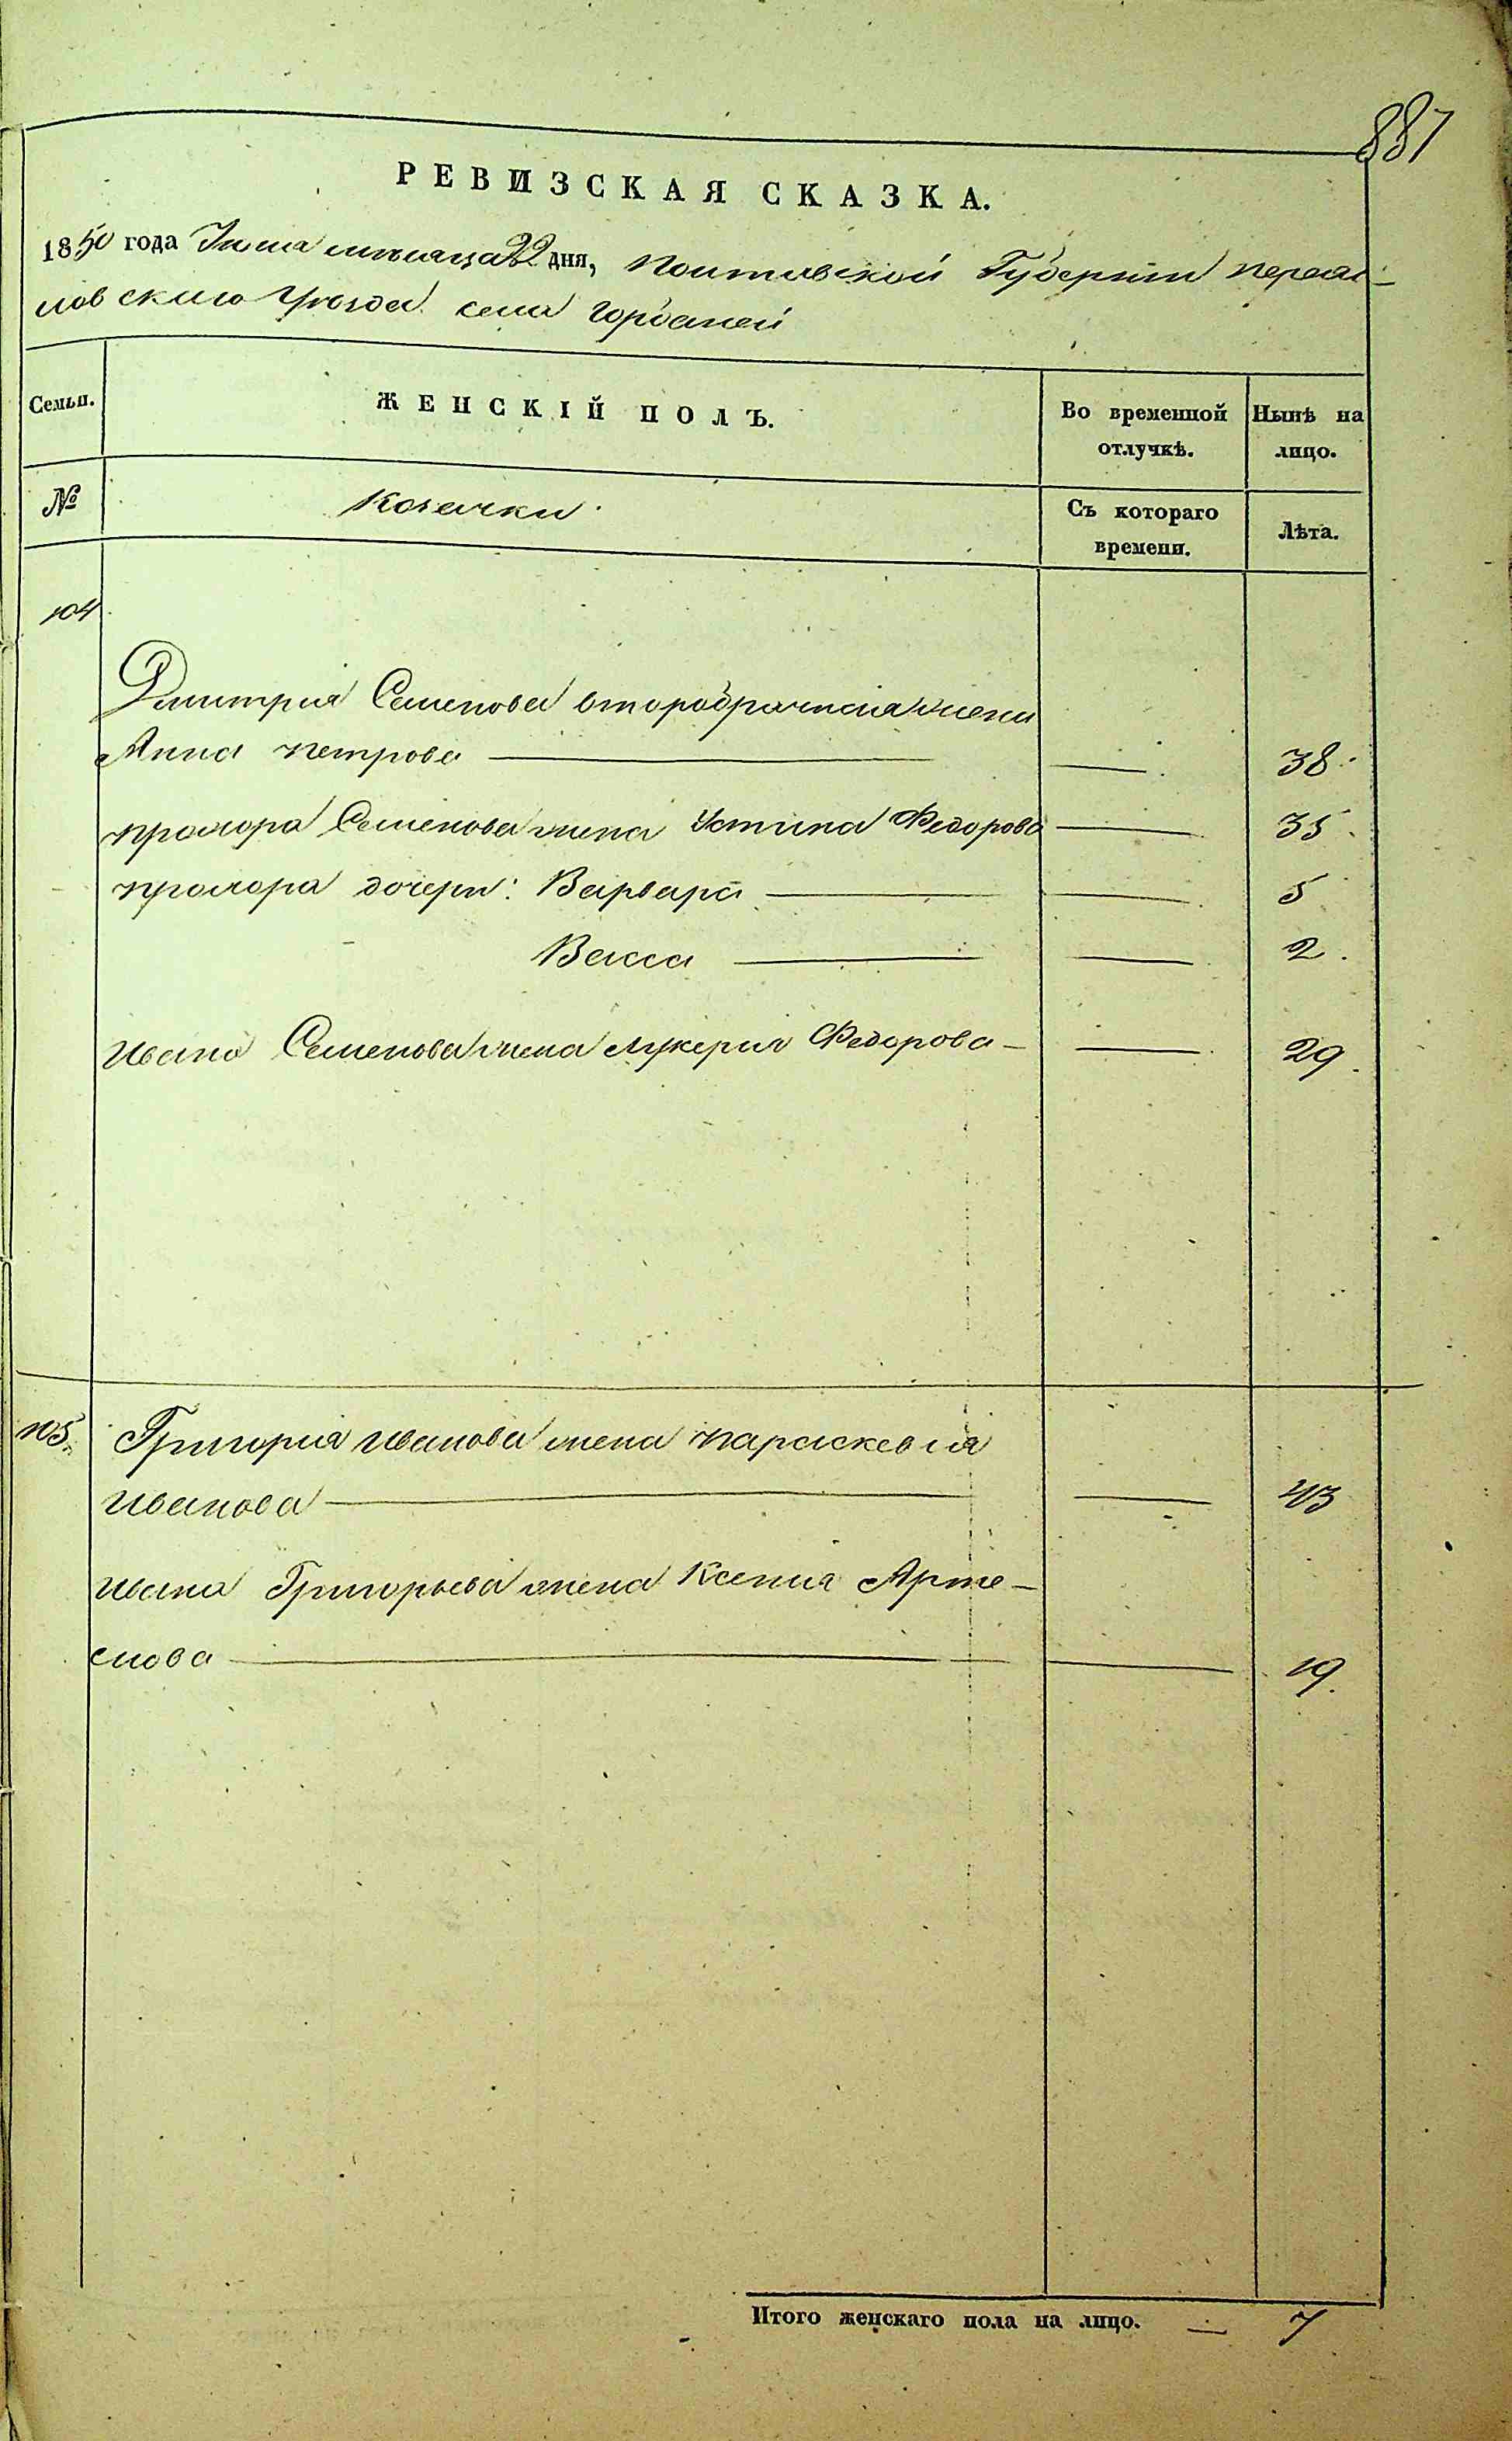 887
РЕВИЗСКАЯ СКАЗКА.
1850 года Июля мѣсяца 22 дня, Полтавской Губерніи Переяс-
ловскаго Уѣзда села Горбаней
Семьи.
ЖЕНСКІЙ ПОЛЪ.
Во временной отлучкѣ.
Нынѣ на лицо.
№
Козачки
Съ котораго времени.
Лѣта.
104
Дмитрія Семенова второбрачная жена
Анна Петрова — — 38
Прохора Семенова жена Устина Федорова — 35
Прохора дочери: Варвара — — 5
Васса — — 2
Ивана Семенова жена Лукерія Федорова — — 29
105. Григорія Иванова жена Параскевія
Иванова — — 43
Ивана Григорьева жена Ксенія Арте-
мова — — 19
Итого женскаго пола на лицо. — 7